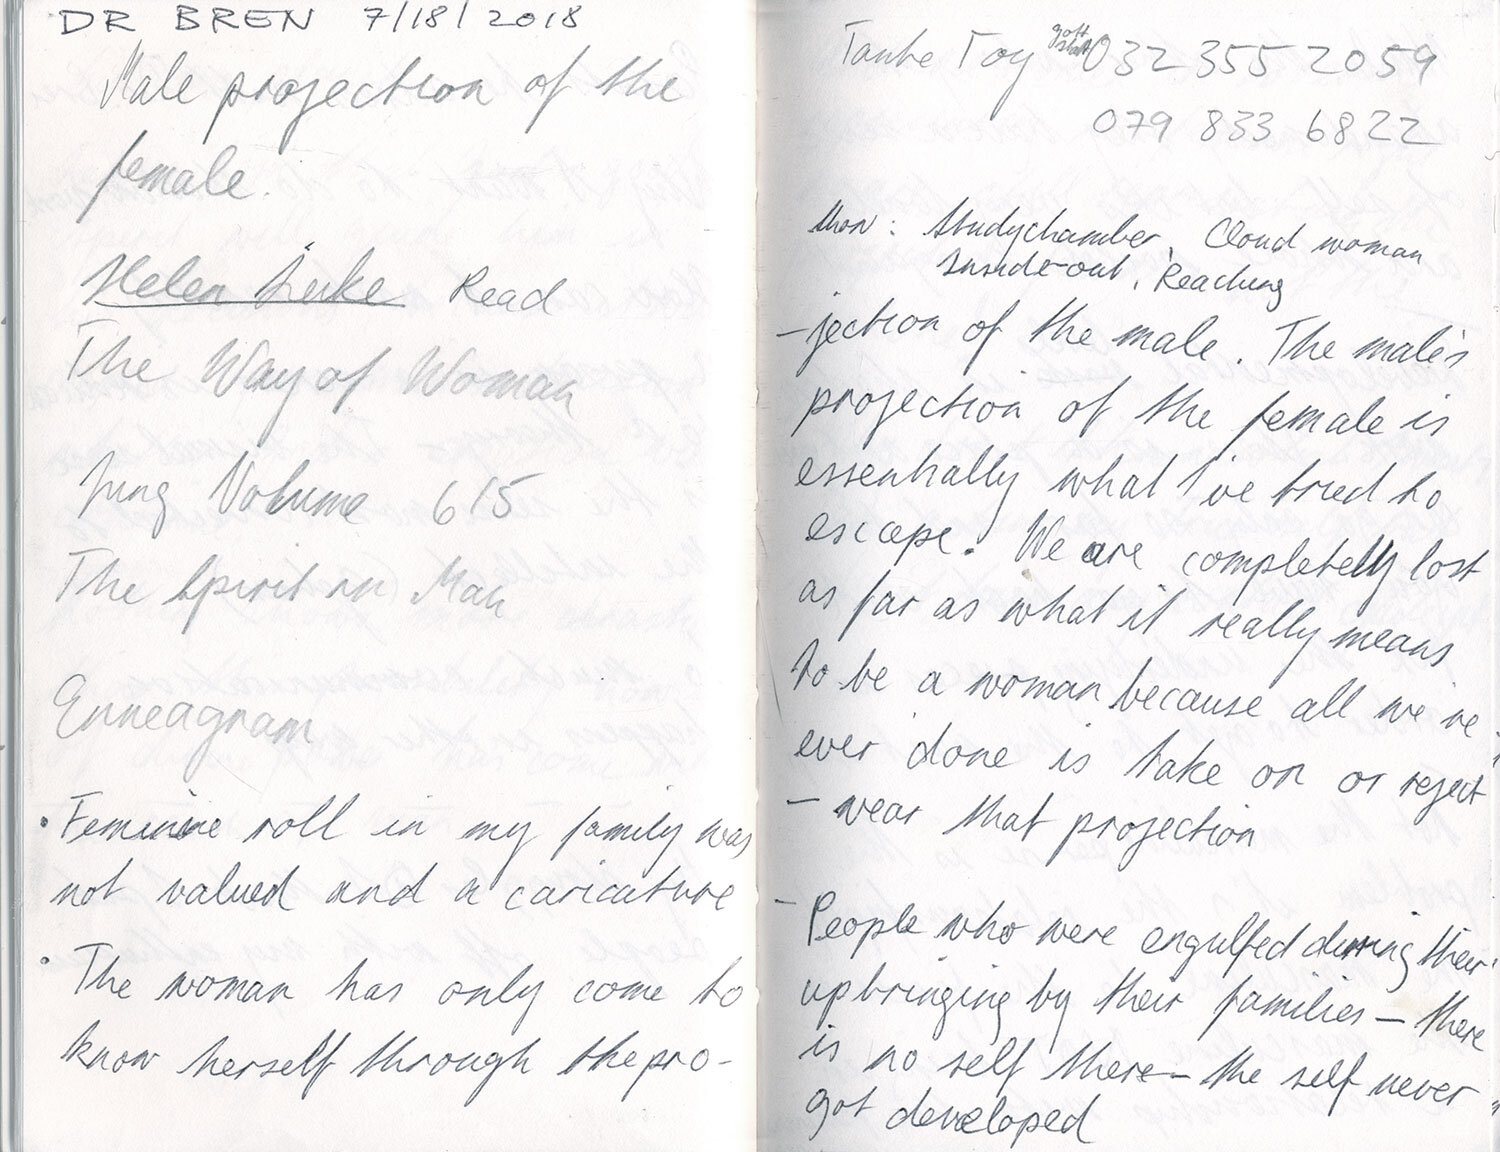 DR BREN 7/18/2018
Male projection of the
female.
Helen Luke Read
The Way of Woman
Jung Volume 6/5
The Spirit in Man
Enneagram
• Feminine roll in my family was
not valued and a caricature
• The woman has only come to
know herself through the pro-
Toy 032 355 2059
079 833 6822
Studychamber, Cloud woman
Inside-out, Reaching
-jection of the male. The male's
projection of the female is
essentially what I've tried to
escape. We are completely lost
as far as what it really means
to be a woman because all we've
ever done is take on or reject
- wear that projection
- People who were engulfed during their
upbringing by their families – there
is no self there – the self never
got developed